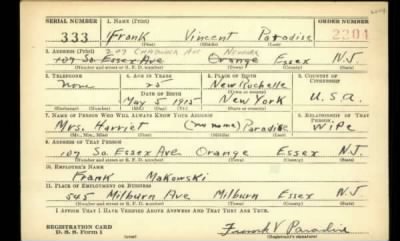 SERIAL NUMBER 1. NAME (Print) ORDER NUMBER
333 Frank Vincent Paradise 2204
(First) (Middle) (Last)
2. ADDRESS (Print) 207 Ave Newark
107 So. Essex Ave Orange Essex N.J.
(Number and street or R. F. D. number) (Town) (County) (State)
3. TELEPHONE 4. AGE IN YEARS 5. PLACE OF BIRTH 6. COUNTRY OF CITIZENSHIP
none 25 New Rochelle
DATE OF BIRTH (Town or county)
May 5 1915 New York U.S.A.
(Exchange) (Number) (Mo.) (Day) (Yr.) (State or country)
7. NAME OF PERSON WHO WILL ALWAYS KNOW YOUR ADDRESS 8. RELATIONSHIP OF THAT PERSON
Mrs. Harriet (no name) Paradise Wife
(Mr., Mrs., Miss) (First) (Middle) (Last)
9. ADDRESS OF THAT PERSON
107 So. Essex Ave Orange Essex N.J.
(Number and street or R. F. D. number) (Town) (County) (State)
10. EMPLOYER'S NAME
Frank Makowski
11. PLACE OF EMPLOYMENT OR BUSINESS
545 Milburn Ave Milburn Essex N.J.
(Number and street or R. F. D. number) (Town) (County) (State)
I AFFIRM THAT I HAVE VERIFIED ABOVE ANSWERS AND THAT THEY ARE TRUE.
REGISTRATION CARD
D. S. S. Form 1 Frank V Paradise
(Registrant's signature)